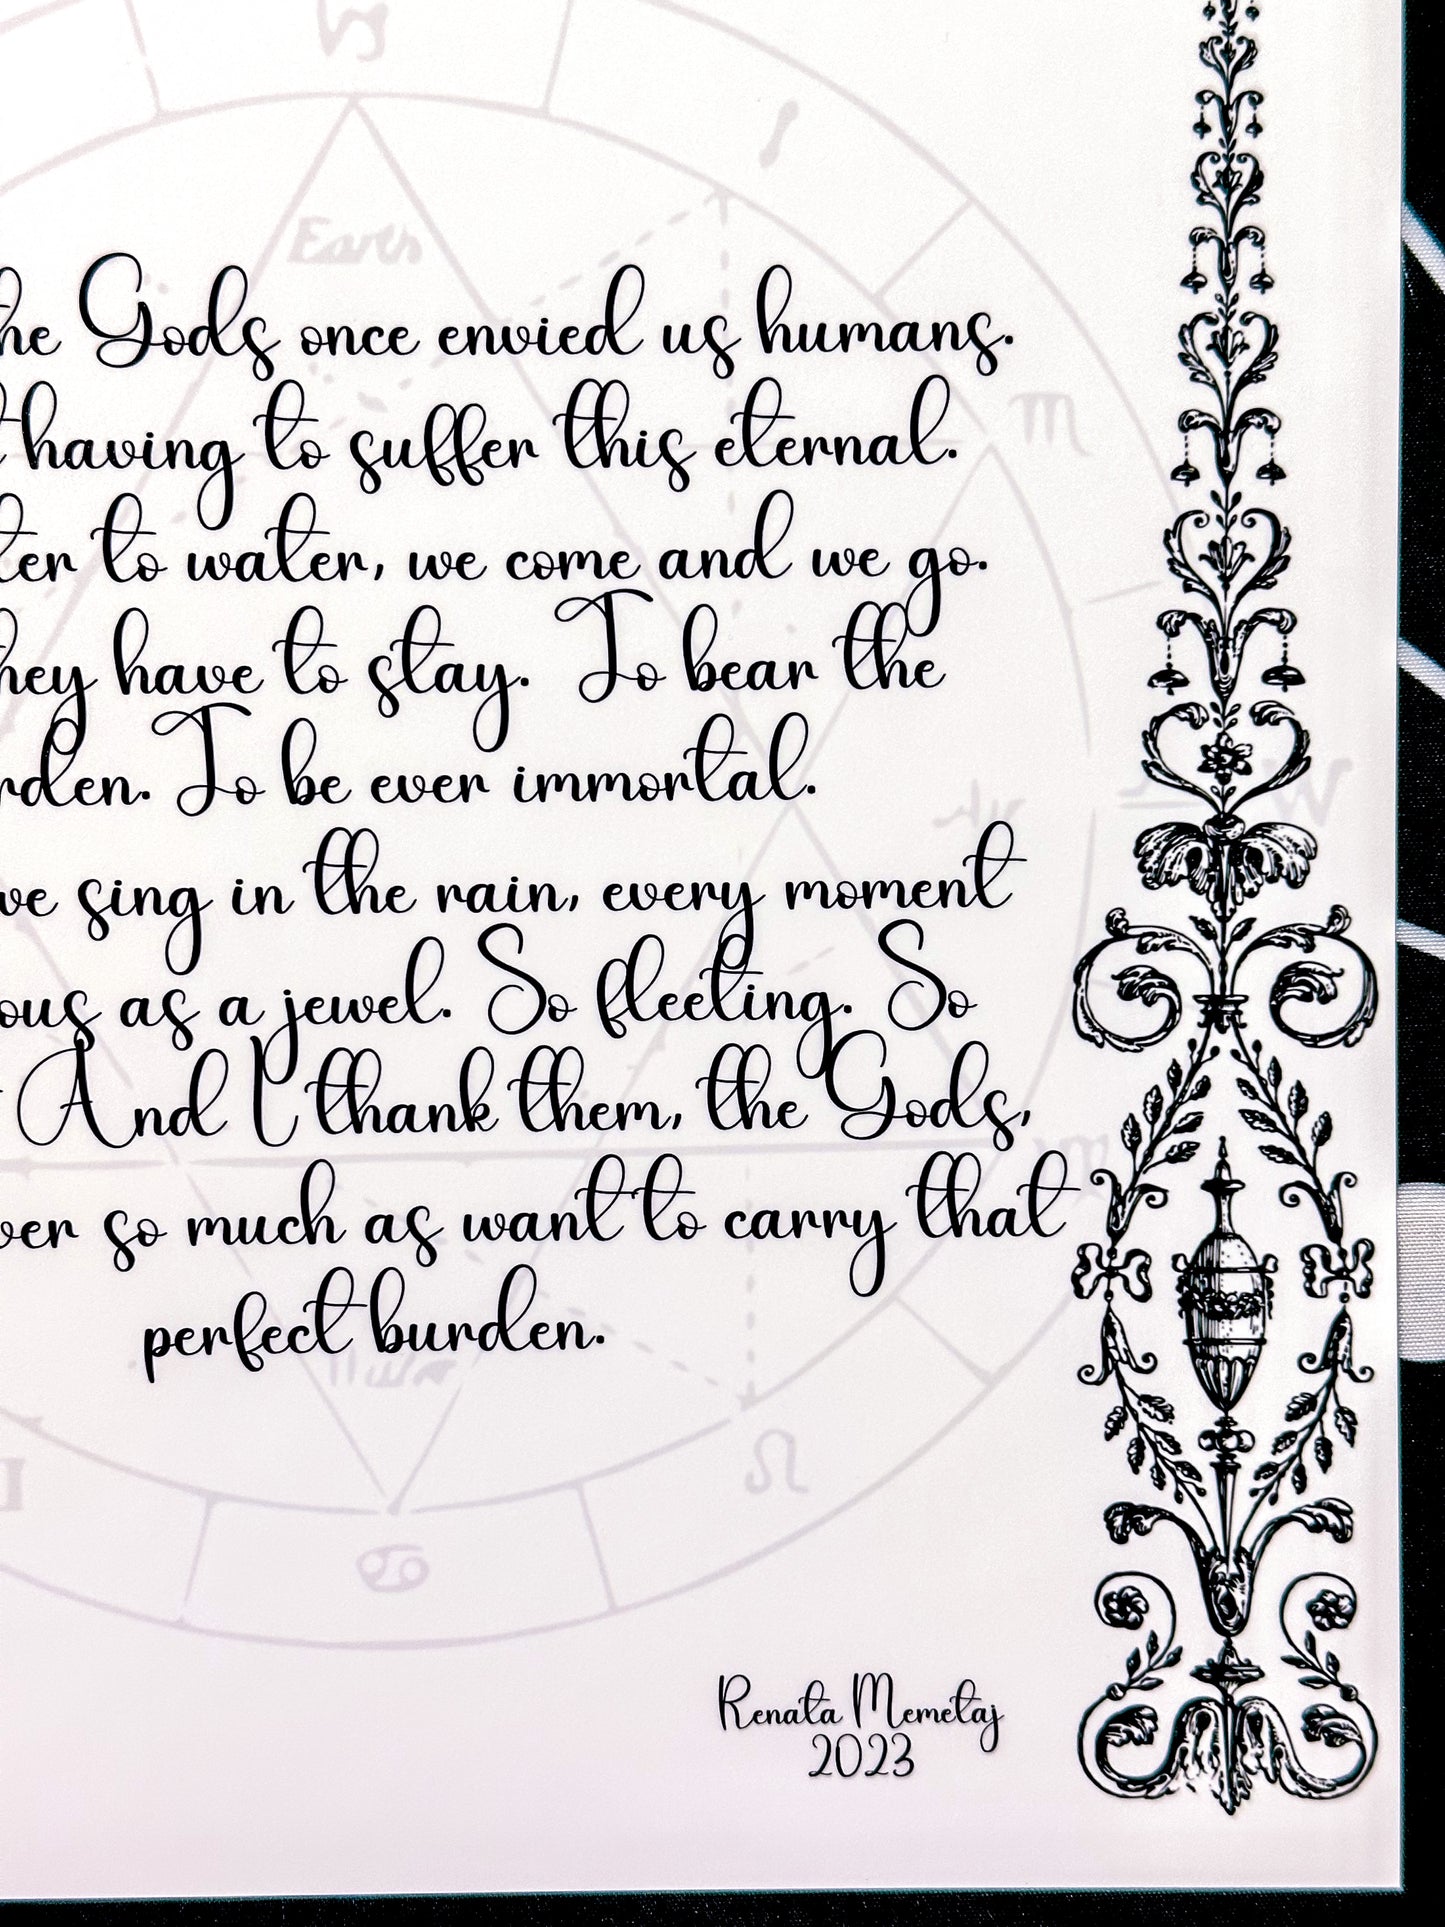 Earth
he Gods once envied us humans.
t having to suffer this eternal.
ter to water, we come and we go.
hey have to stay. To bear the
rden. To be ever immortal.
Air
W
we sing in the rain, every moment
ous as a jewel. So fleeting. So
And I thank them, the Gods,
ver so much as want to carry that
perfect burden.
Water
Renata Memetaj
2023